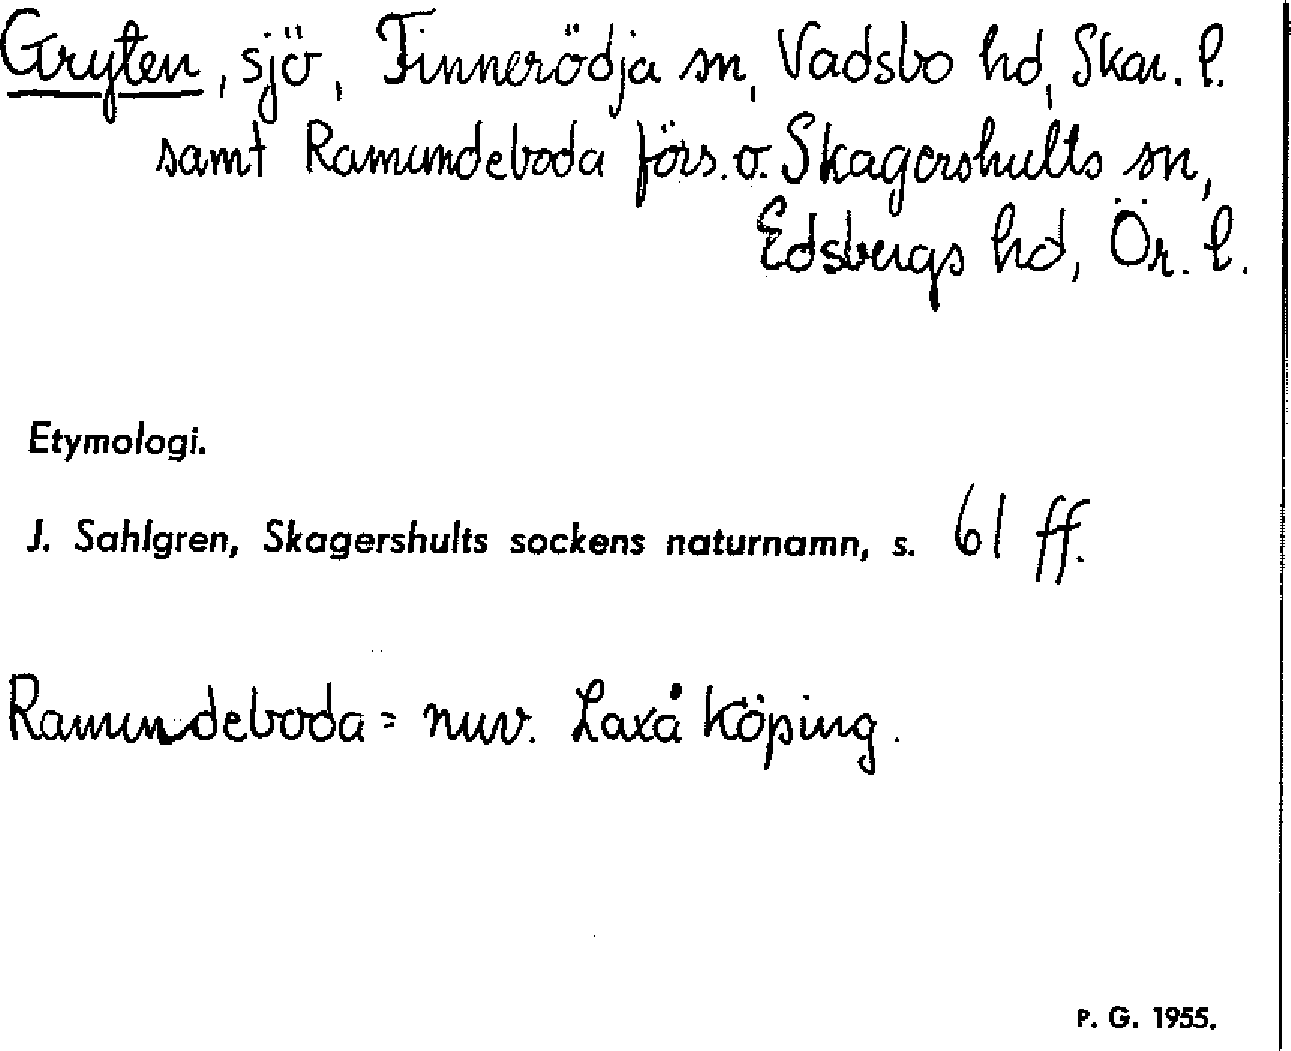 Gryten, sjö, Finnerödja sn, Vadsbo hd, Skar. l.
samt Ramundeboda förs. o. Skagershults sn,
Edsbergs hd, Ör. l.
Etymologi.
J. Sahlgren, Skagershults sockens naturnamn, s. 61 ff.
Ramundeboda = nuv. Laxå köping.
P. G. 1955.